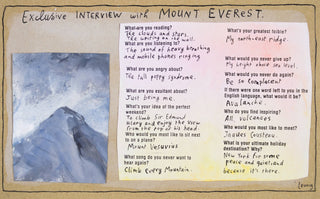 Exclusive INTERVIEW with MOUNT EVEREST.
What are you reading?
The clouds and stars.
The writing on the wall.
What are you listening to?
The sound of heavy breathing
and mobile phones ringing
What are you angry about?
The tall poppy syndrome.
What are you excited about?
Just being me.
What's your idea of the perfect
weekend?
To climb Sir Edmund
Hilary and enjoy the view
from the top of his head
Who would you most like to sit next
to on a plane?
Mount Vesuvius
What song do you never want to
hear again?
Climb Every Mountain.
What's your greatest foible?
My north east ridge.
What would you never give up?
My height above sea level.
What would you never do again?
Be so complacent
If there were one word left to you in the
English language, what would it be?
Avalanche.
Who do you find inspiring?
All volcanoes
Who would you most like to meet?
Jacques Cousteau.
What is your ultimate holiday
destination? Why?
New York for some
peace and quiet, and
because it's there.
Leunig